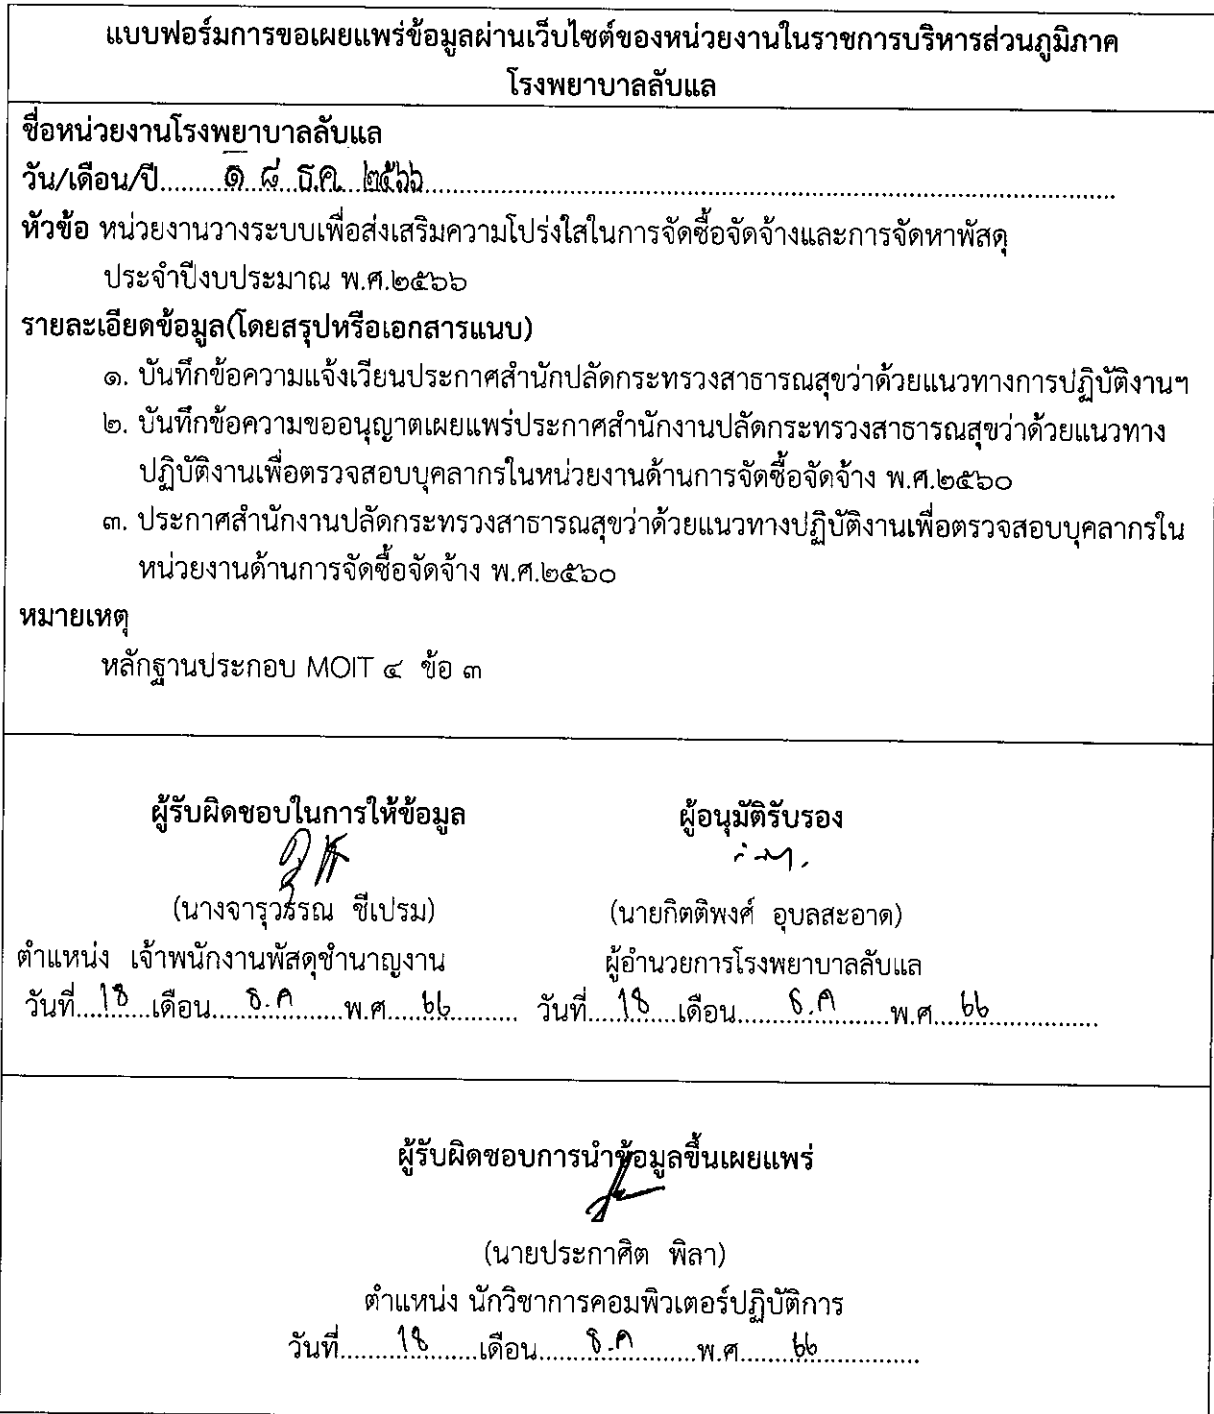 แบบฟอร์มการขอเผยแพร่ข้อมูลผ่านเว็บไซต์ของหน่วยงานในราชการบริหารส่วนภูมิภาค
โรงพยาบาลลับแล
ชื่อหน่วยงานโรงพยาบาลลับแล
วัน/เดือน/ปี.........๑ ๘ ธ.ค. ๒๕๖๖.........
หัวข้อ หน่วยงานวางระบบเพื่อส่งเสริมความโปร่งใสในการจัดซื้อจัดจ้างและการจัดหาพัสดุ
ประจำปีงบประมาณ พ.ศ.๒๕๖๖
รายละเอียดข้อมูล(โดยสรุปหรือเอกสารแนบ)
๑. บันทึกข้อความแจ้งเวียนประกาศสำนักปลัดกระทรวงสาธารณสุขว่าด้วยแนวทางการปฏิบัติงานฯ
๒. บันทึกข้อความขออนุญาตเผยแพร่ประกาศสำนักงานปลัดกระทรวงสาธารณสุขว่าด้วยแนวทาง
ปฏิบัติงานเพื่อตรวจสอบบุคลากรในหน่วยงานด้านการจัดซื้อจัดจ้าง พ.ศ.๒๕๖๐
๓. ประกาศสำนักงานปลัดกระทรวงสาธารณสุขว่าด้วยแนวทางปฏิบัติงานเพื่อตรวจสอบบุคลากรใน
หน่วยงานด้านการจัดซื้อจัดจ้าง พ.ศ.๒๕๖๐
หมายเหตุ
หลักฐานประกอบ MOIT ๔ ข้อ ๓
ผู้รับผิดชอบในการให้ข้อมูล ผู้อนุมัติรับรอง
(นางจารุวรรณ ชีเปรม) (นายกิตติพงศ์ อุบลสะอาด)
ตำแหน่ง เจ้าพนักงานพัสดุชำนาญงาน ผู้อำนวยการโรงพยาบาลลับแล
วันที่....18....เดือน.....ธ.ค......พ.ศ.....66......... วันที่....18....เดือน.......ธ.ค.......พ.ศ....66.........
ผู้รับผิดชอบการนำข้อมูลขึ้นเผยแพร่
(นายประกาศิต พิลา)
ตำแหน่ง นักวิชาการคอมพิวเตอร์ปฏิบัติการ
วันที่.......18.......เดือน.......ธ.ค.......พ.ศ.......66.........